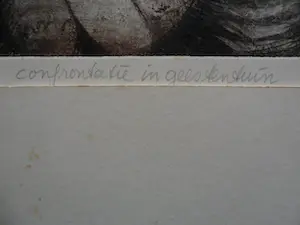 confrontatie in geestentuin